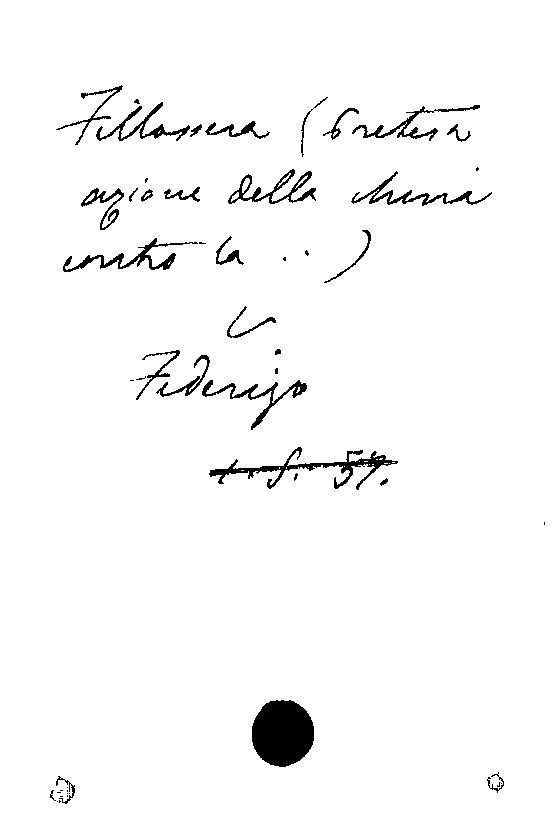 Fillossera (Pretesa
azione della
contro la ..)
V
Federigo
t. f. 57.